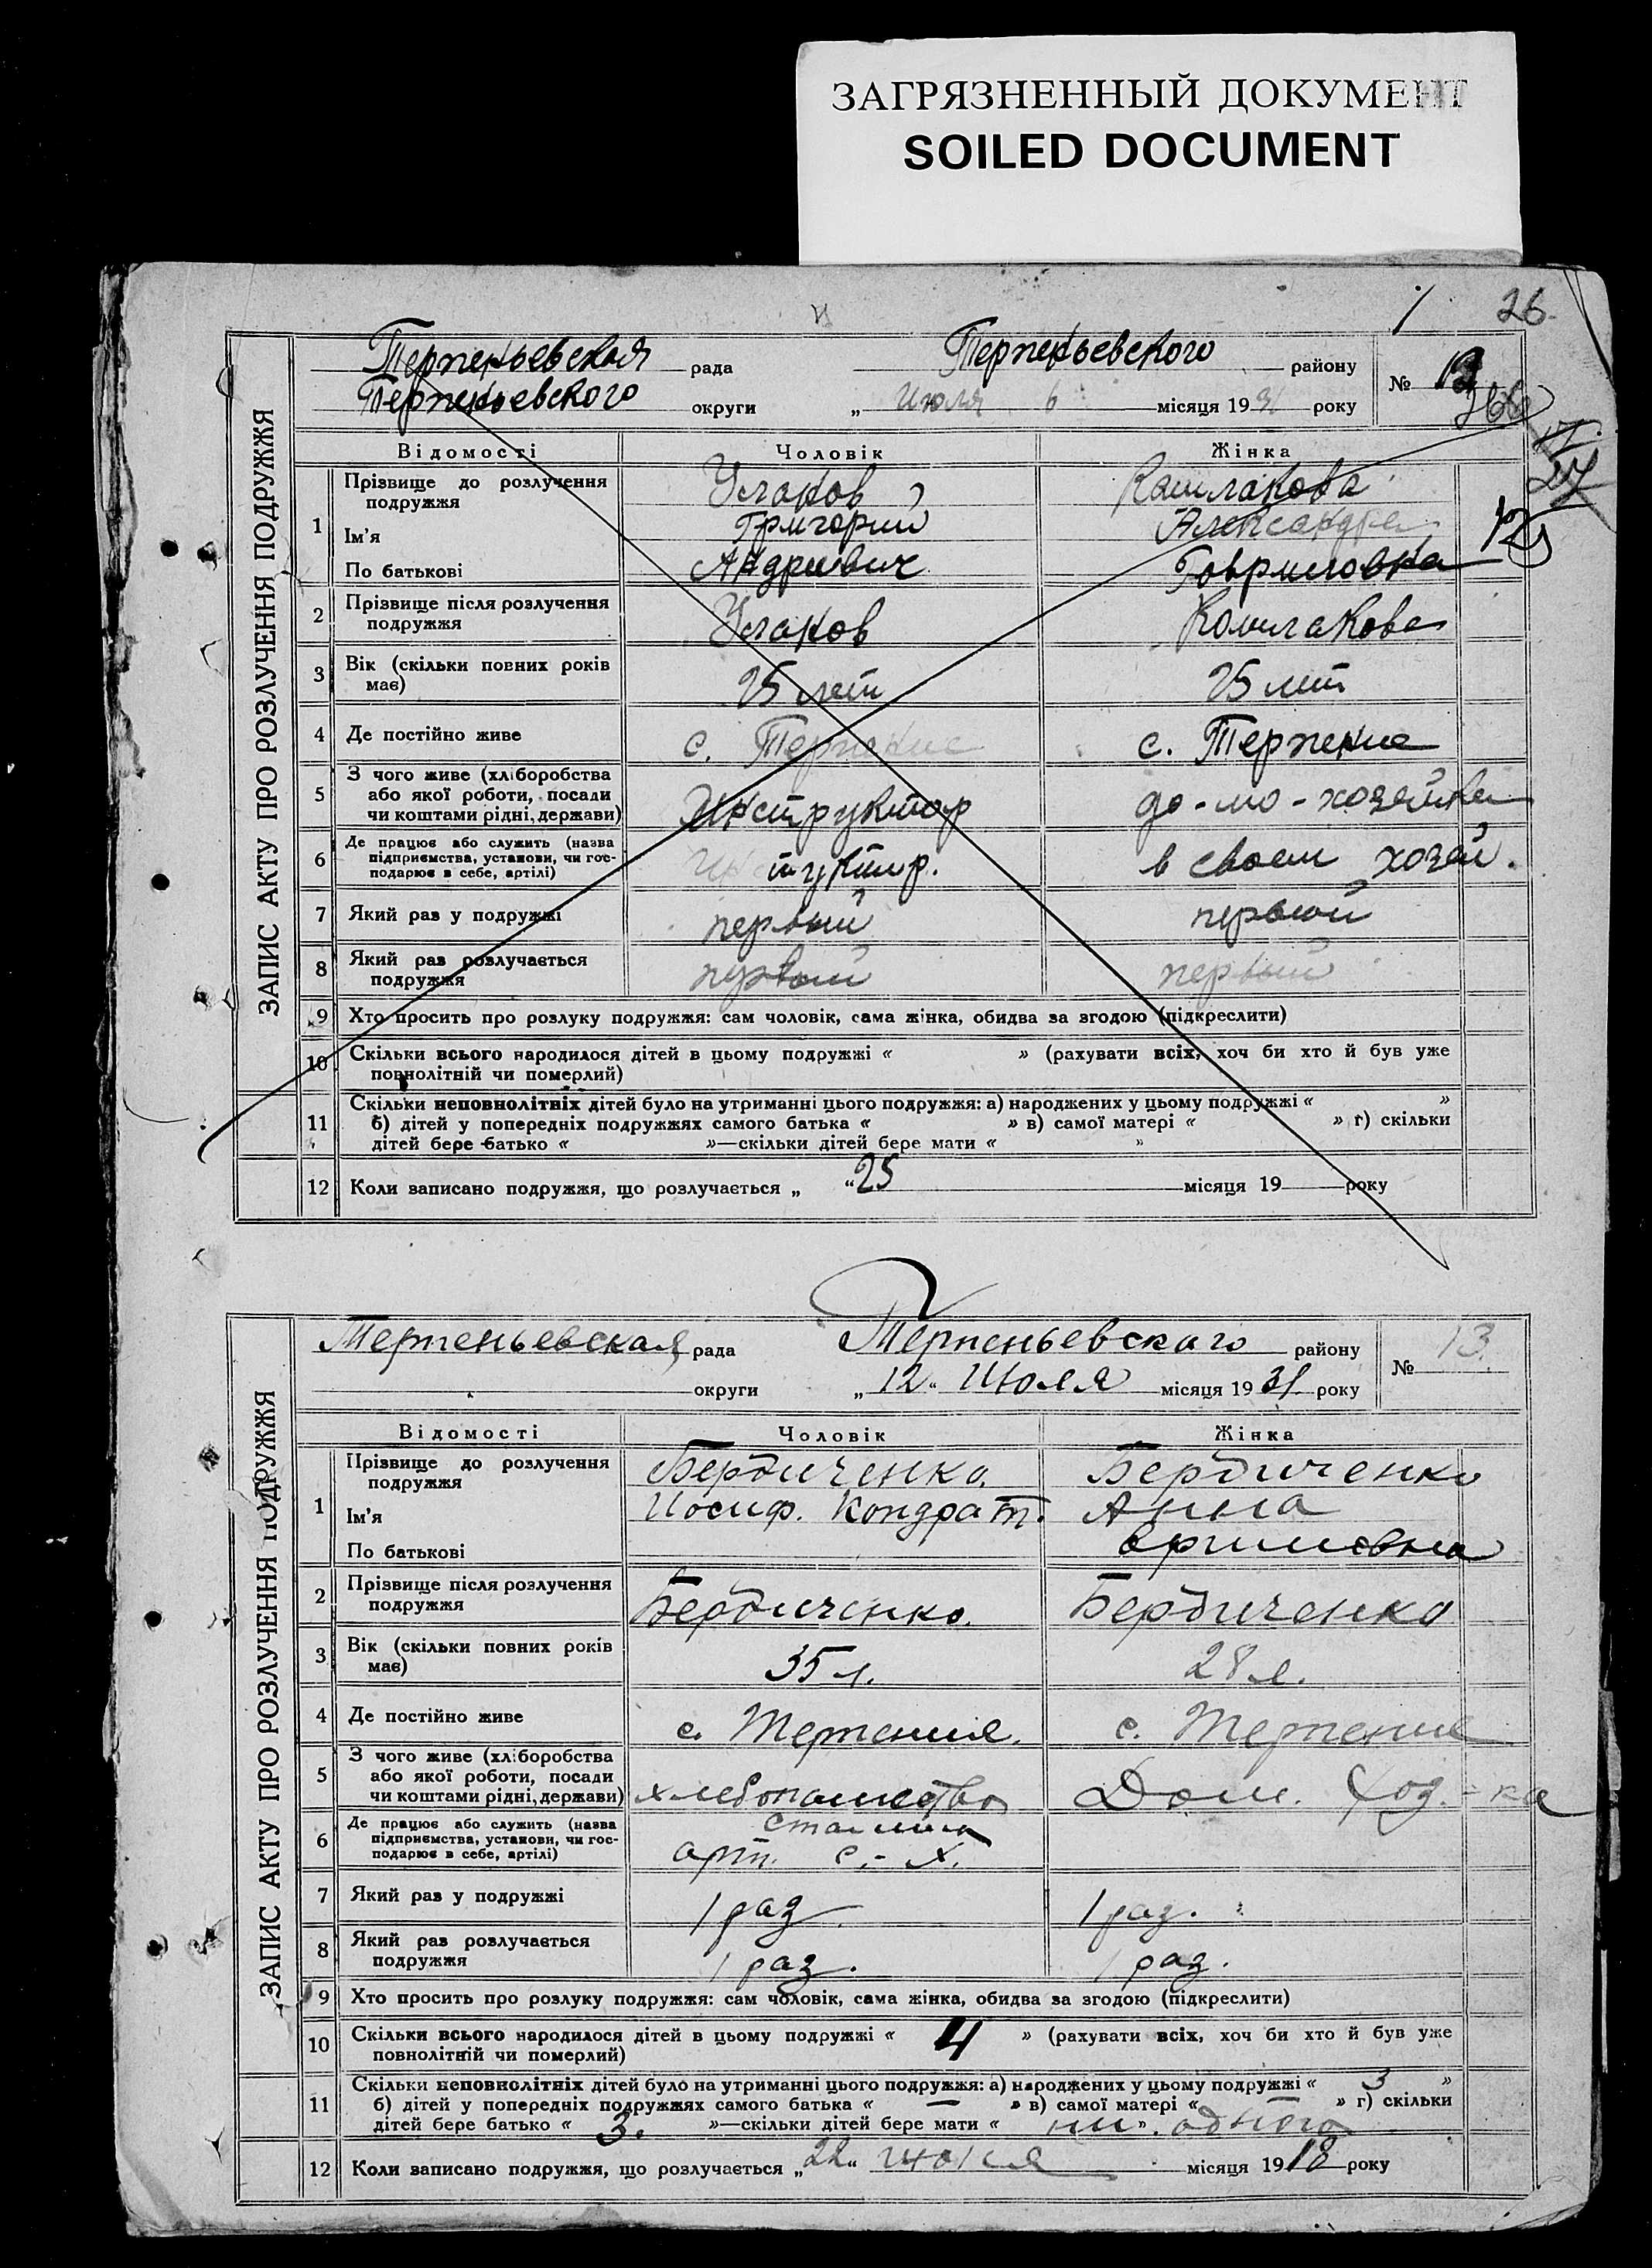 ЗАГРЯЗНЕННЫЙ ДОКУМЕНТ
SOILED DOCUMENT
26
ЗАПИС АКТУ ПРО РОЗЛУЧЕННЯ ПОДРУЖЖЯ
Терпеньевская рада Терпеньевского району №
Терпеньевского округи „ Июля 6 місяця 1931 року
Відомості Чоловік Жінка
1 Прізвище до розлучення подружжя Усаков Кашлакова
Ім'я Григорий Александра
По батькові Андриевич Говриловна
12
2 Прізвище після розлучення подружжя Усаков Кошлакова
3 Вік (скільки повних років має) 25 лет 25 лет
4 Де постійно живе с. Терпение с. Терпение
5 З чого живе (хліборобства або якої роботи, посади чи коштами рідні, держави) Инструктор до-мо-хозяйка
6 Де працює або служить (назва підприємства, установи, чи господарює в себе, артілі) в своем хозяй.
7 Який раз у подружжі первый первый
8 Який раз розлучається подружжя первый первый
9 Хто просить про розлуку подружжя: сам чоловік, сама жінка, обидва за згодою (підкреслити)
10 Скільки всього народилося дітей в цьому подружжі « » (рахувати всіх, хоч би хто й був уже
повнолітній чи померлий)
11 Скільки неповнолітніх дітей було на утриманні цього подружжя: а) народжених у цьому подружжі « »
б) дітей у попередніх подружжях самого батька « » в) самої матері « » г) скільки
дітей бере батько « »—скільки дітей бере мати « »
12 Коли записано подружжя, що розлучається „ “ 25 місяця 19 року
ЗАПИС АКТУ ПРО РОЗЛУЧЕННЯ ПОДРУЖЖЯ
Терпеньевская рада Терпеньевскаго району № 13.
округи „ 12 “ Июля місяця 1931 року
Відомості Чоловік Жінка
1 Прізвище до розлучення подружжя Бердиченко. Бердиченко
Ім'я Иосиф. Кондрат. Анна
По батькові
2 Прізвище після розлучення подружжя Бердиченко. Бердиченко
3 Вік (скільки повних років має) 35 л. 28 л.
4 Де постійно живе с. Терпения. с. Терпение
5 З чого живе (хліборобства або якої роботи, посади чи коштами рідні, держави) хлебопашество Дом. Хоз.-ка
6 Де працює або служить (назва підприємства, установи, чи господарює в себе, артілі) арт. с.-х.
7 Який раз у подружжі 1 раз 1 раз.
8 Який раз розлучається подружжя 1 раз. 1 раз.
9 Хто просить про розлуку подружжя: сам чоловік, сама жінка, обидва за згодою (підкреслити)
10 Скільки всього народилося дітей в цьому подружжі « 4 » (рахувати всіх, хоч би хто й був уже
повнолітній чи померлий)
11 Скільки неповнолітніх дітей було на утриманні цього подружжя: а) народжених у цьому подружжі « 3 »
б) дітей у попередніх подружжях самого батька « — » в) самої матері « » г) скільки
дітей бере батько « 3. »—скільки дітей бере мати « ни » одного
12 Коли записано подружжя, що розлучається „ 22 “ июля місяця 1918 року